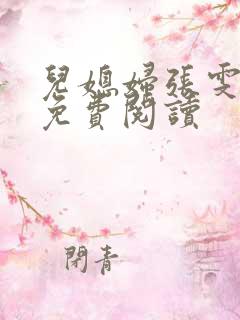 兒媳婦張雯
免費閱讀
閉青